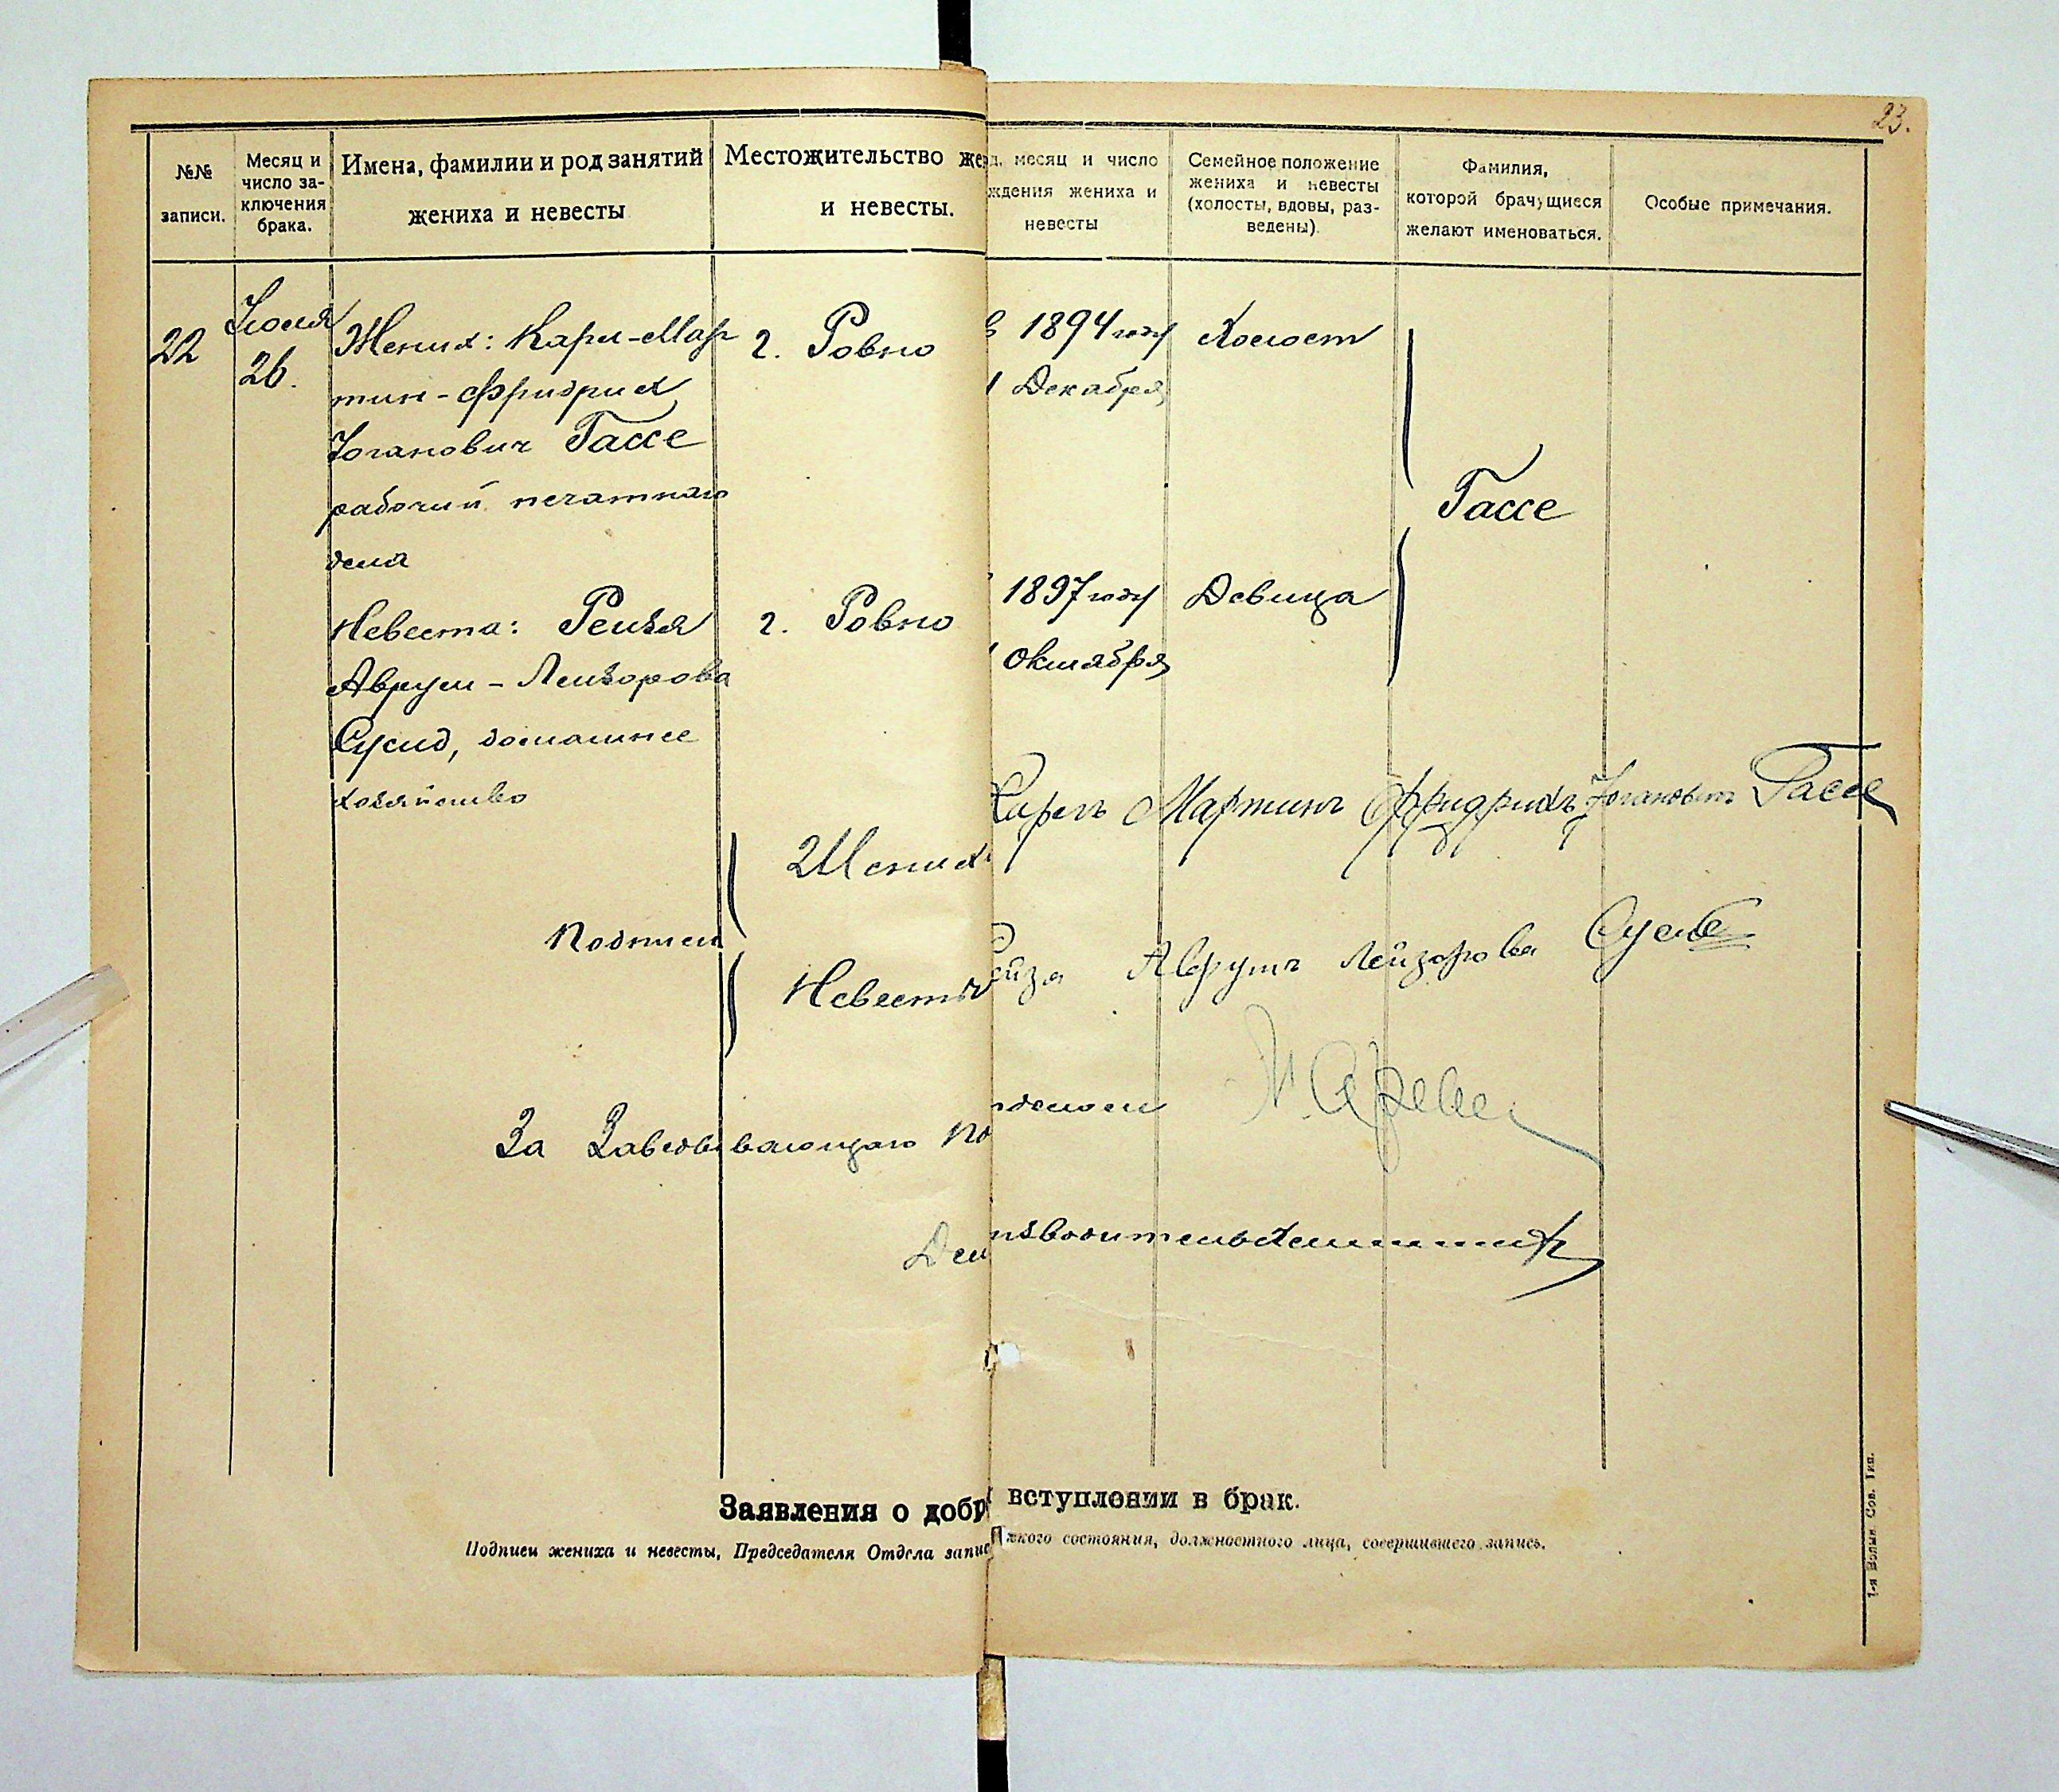 23.
№№ записи.
Месяц и число за-
ключения брака.
Имена, фамилии и род занятий
жениха и невесты
Местожительство же
и невесты.
месяц и число
ждения жениха и
невесты
Семейное положение
жениха и невесты
(холосты, вдовы, раз-
ведены).
Фамилия,
которой брачущиеся
желают именоваться.
Особые примечания.
22
Июля
26.
Жених: Карл-Мар
тин-Фридрих
Иоганович Гассе
рабочий печатнаго
дела
г. Ровно
в 1894 году
1 Декабря
Холост
Гассе
Невеста: Рейзя
Аврум-Лейзорова
Сусид, домашнее
хозяйство
г. Ровно
1897 году
Октября
Девица
Подписи
Жених
Карлъ Мартинъ Фридрихъ Иогановичъ Гассе
Невесты
ейзя Аврумъ Лейзорова
За Заведывающаго По
отделом
Дел
изводитель
Заявления о добр вступлении в брак.
Подписи жениха и невесты, Председателя Отдела запис ского состояния, должностного лица, совершившего запись.
1-я Волын. Сов. Тип.